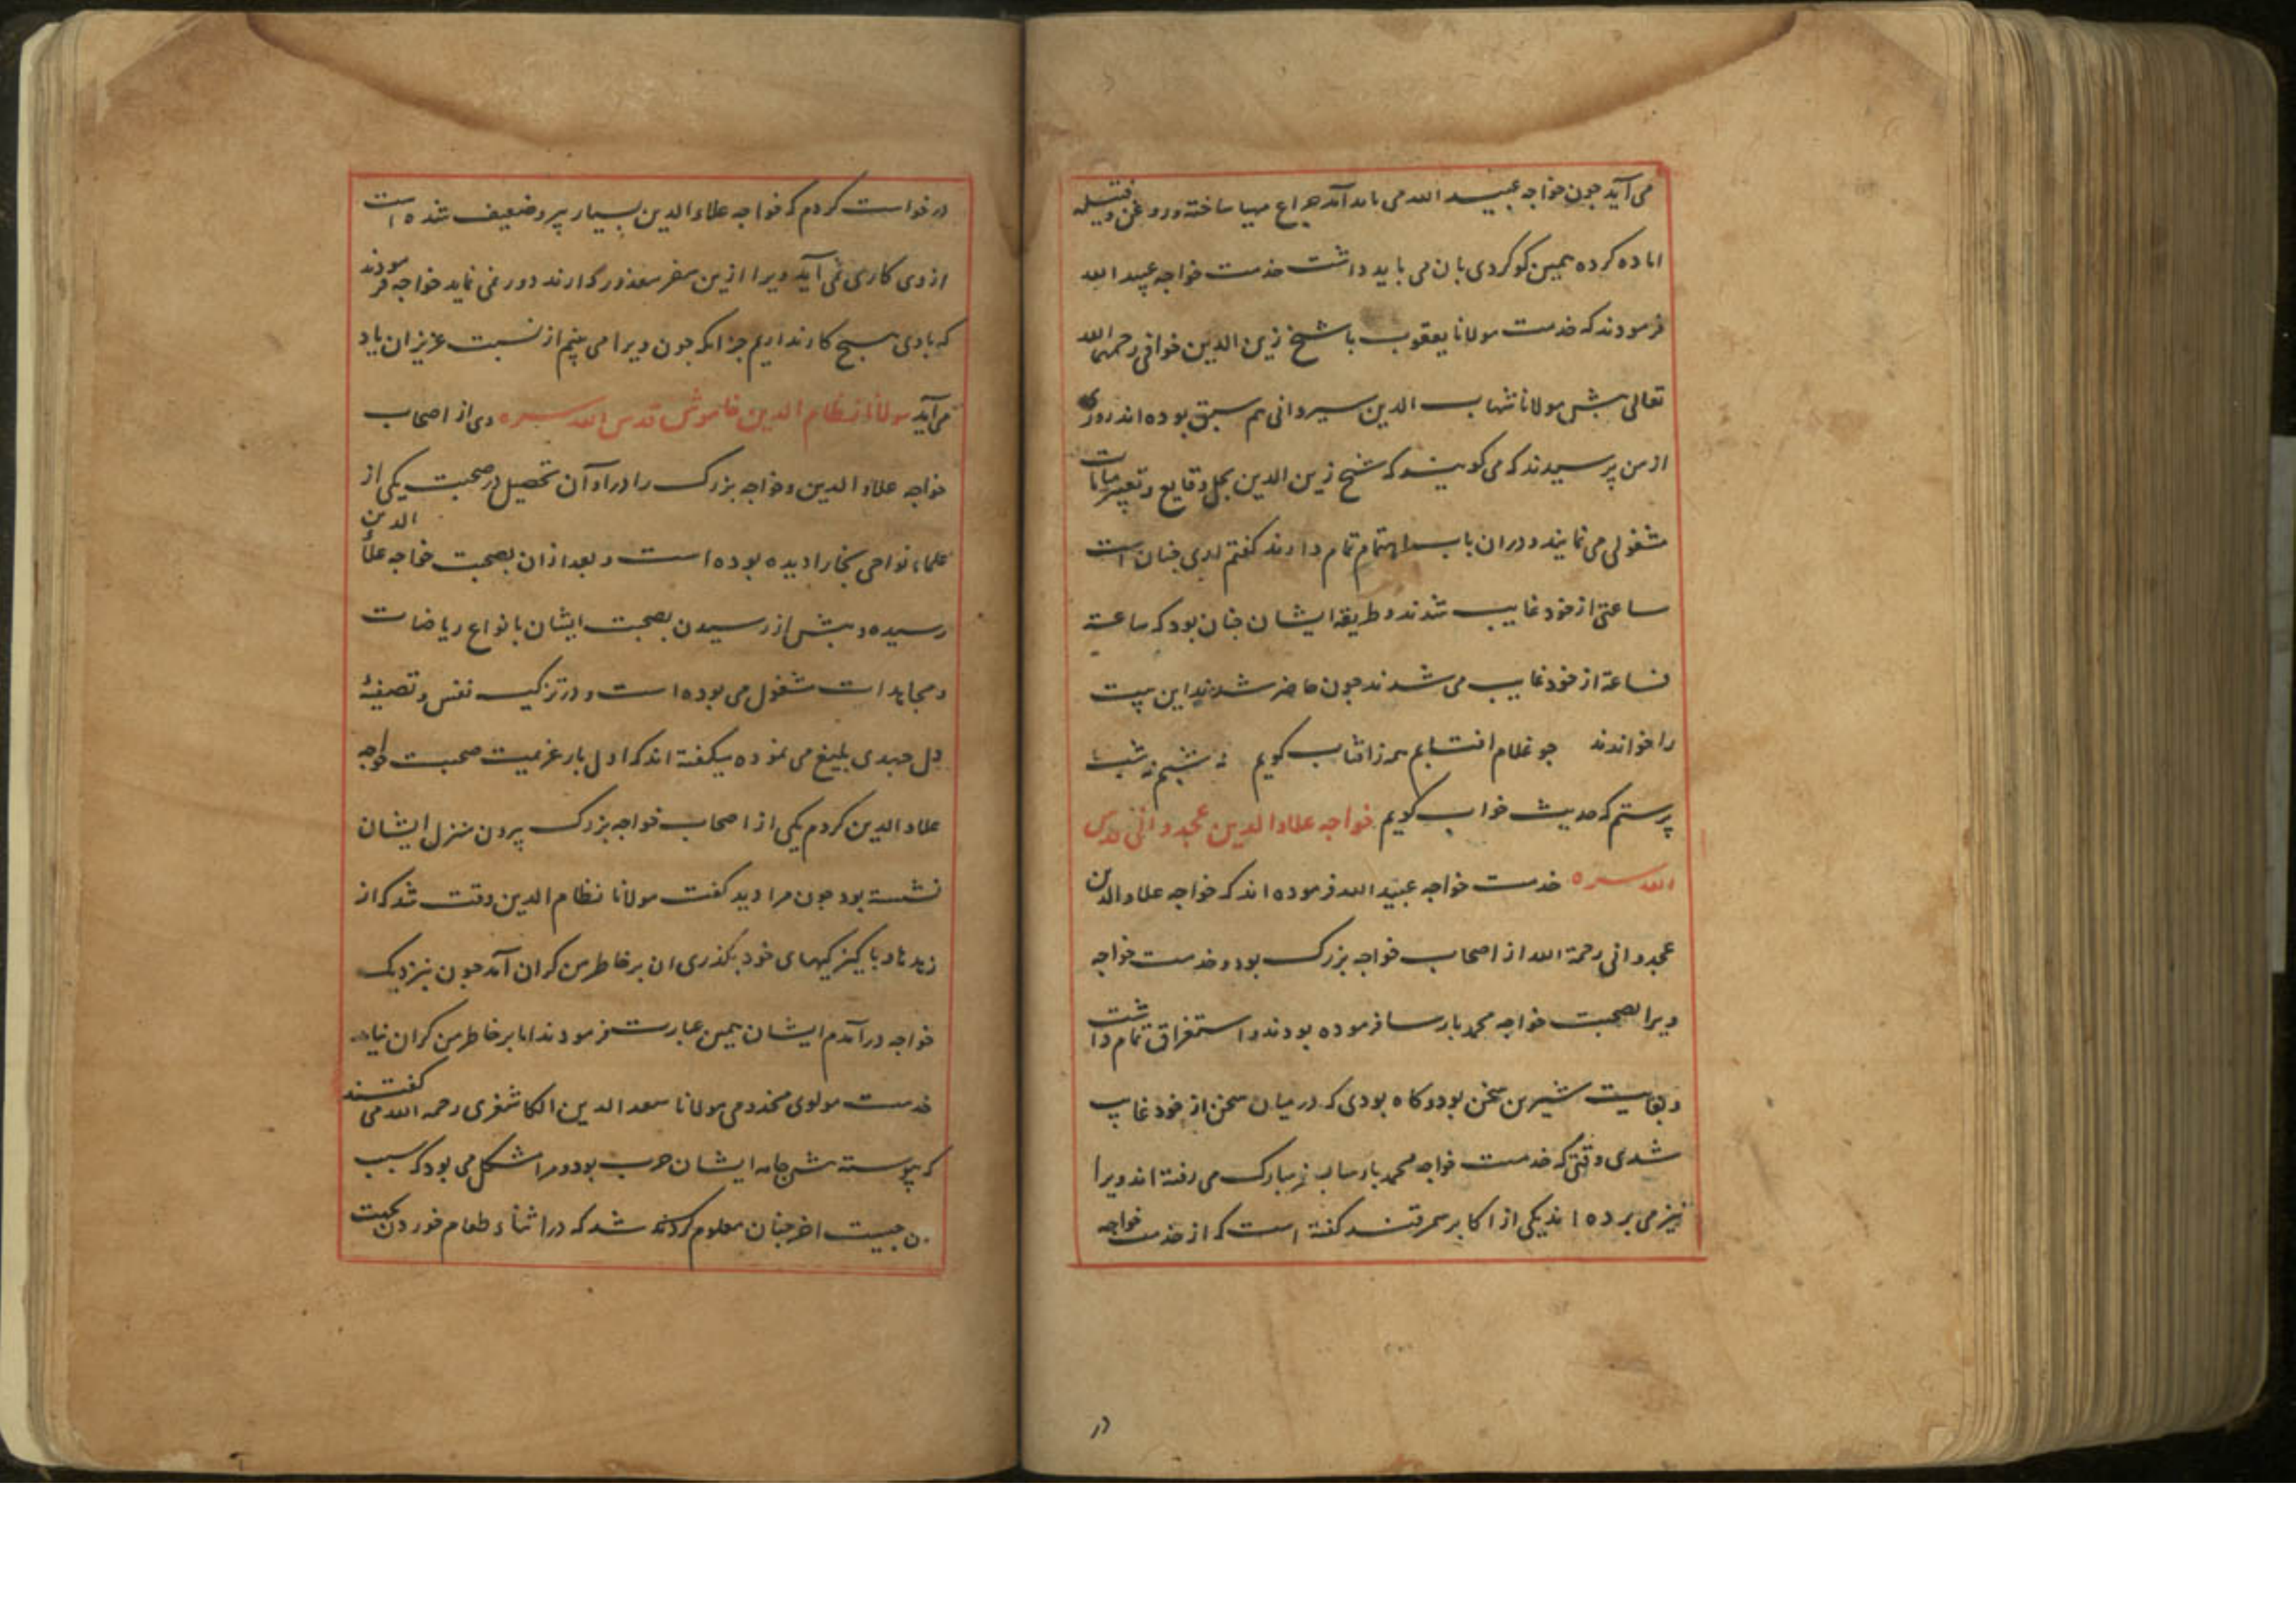 می آید جون خواجه عبید الله می باید آمد جراغ مهیا ساخته و روغن و فتیله
اماده کرده همین کوکردی بان می باید داشت خدمت خواجه عبید الله
فرمودند که خدمت مولانا یعقوب با شیخ زین الدین خوافی رحمهما الله
تعالی بیش مولانا شهاب الدین سیروانی هم سبق بوده اند روزی
از من برسیدند که می کویند که شیخ زین الدین بحل وقایع و تعبیر منامات
مشغولی می نمایند و دران باب اهتمام تمام دارند کفتم اری جنان است
ساعتی از خود غایب شدند و طریقه ایشان جنان بود که ساعة
فساعة از خود غایب می شدند جون حاضر شدند این بیت
را خواندند جو غلام افتابم همه ز افتاب کویم نه شبم نه شب
برستم که حدیث خواب کویم خواجه علاء الدین غجدوانی قدس
الله سره خدمت خواجه عبید الله فرموده اند که خواجه علاء الدین
غجدوانی رحمة الله از اصحاب خواجه بزرک بود و خدمت خواجه
ویرا بصحبت خواجه محمد بارسا فرموده بودند و استغراق تمام داشت
و بغایت شیرین سخن بود و کاه بودی که در میان سخن از خود غایب
شدی وقتی که خدمت خواجه محمد بارسا بسفر مبارک می رفته اند ویرا
نیز می برده اند یکی از اکابر سمرقند کفته است که از خدمت خواجه
در
درخواست کردم که خواجه علاء الدین بسیار پیر و ضعیف شده است
از وی کاری نمی آید ویرا ازین سفر معذور کذارند دور نمی نماید خواجه فرمودند
که باوی هیج کار نداریم جز انکه جون ویرا می بینم از نسبت عزیزان یاد
می آید مولانا نظام الدین خاموش قدس الله سره وی از اصحاب
خواجه علاء الدین و خواجه بزرک را در اوان تحصیل در صحبت یکی از
علماء نواحی بخارا دیده بوده است و بعد ازان بصحبت خواجه علاء الدین
رسیده و بیش از رسیدن بصحبت ایشان بانواع ریاضات
و مجاهدات مشغول می بوده است و در تزکیه نفس و تصفیه
دل جهدی بلیغ می نموده میکفته اند که اول بار عزیمت صحبت خواجه
علاء الدین کردم یکی از اصحاب خواجه بزرک بیرون منزل ایشان
نشسته بود جون مرا دید کفت مولانا نظام الدین وقت شد که از
زهدها و باکیزکیهای خود بکذری ان بر خاطر من کران آمد جون بنزدیک
خواجه در آمدم ایشان همین عبارت فرمودند اما بر خاطر من کران نیامد
خدمت مولوی مخدومی مولانا سعد الدین الکاشغری رحمه الله می کفتند
که بیوسته بیش جامه ایشان جرب بود و مرا مشکل می بود که سبب
ان جیست اخر جنان معلوم کردند شد که در اثناء طعام خوردن بجهت